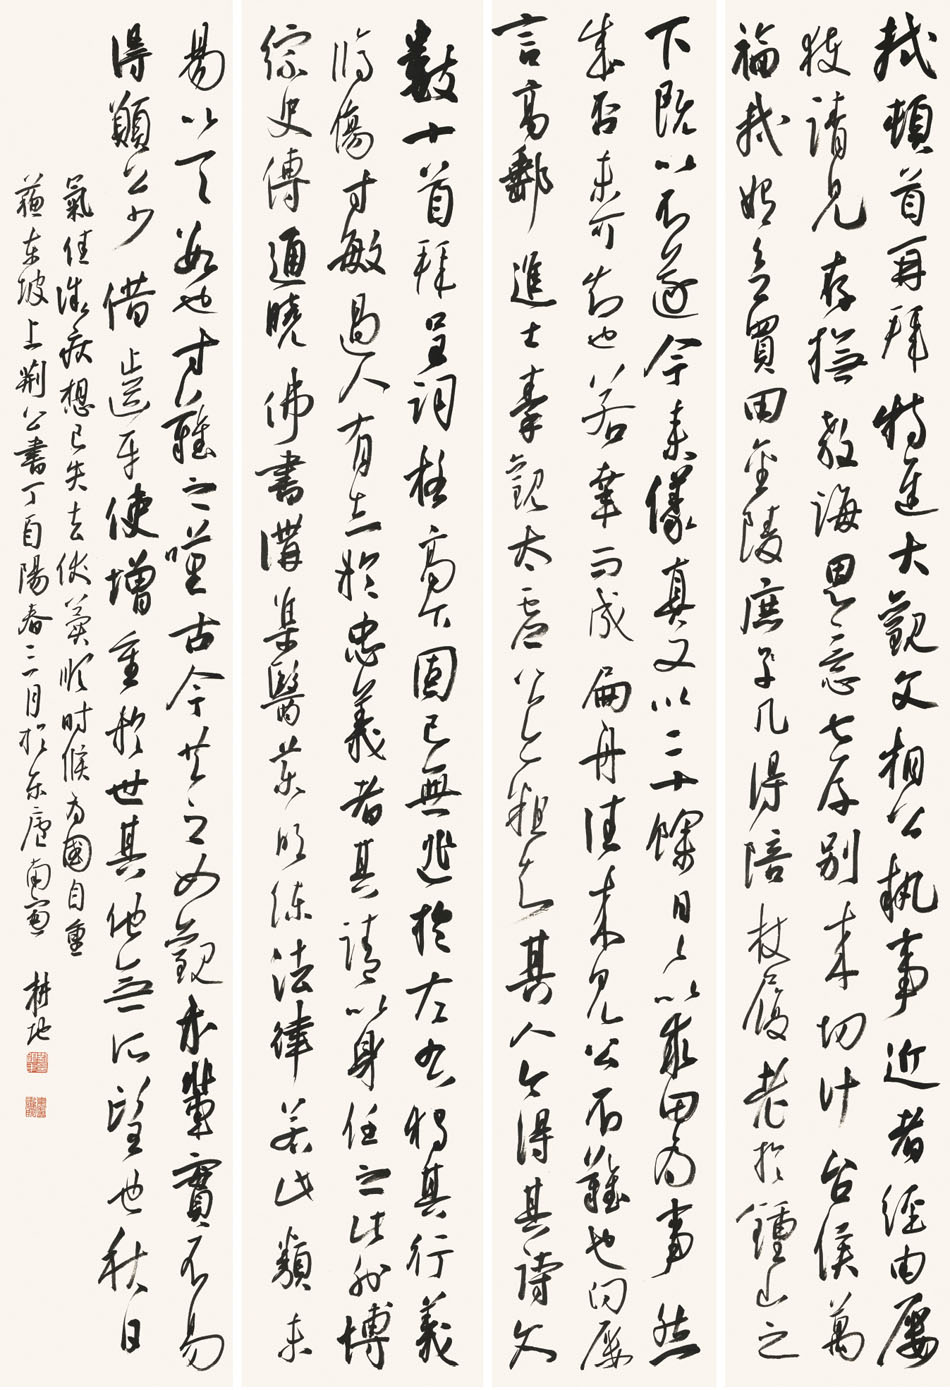 軾頓首再拜特進大觀文相公執事近者經由屢
獲請見存撫教誨恩意甚厚別来切計台候萬
福軾始欲買田金陵庶几得陪杖屨老於鍾山之
下既以不遂今来儀真又以二十餘日日以求田為事然
成否未可知也若幸而成扁舟往来見公不難也向屢
言高郵進士秦觀太虛公亦粗知其人今得其詩文
數十首拜呈詞格高下固已無逃於左右獨其行義
脩傷才敏過人有志於忠義者其請以身任之此外博
綜史傳通曉佛書講集醫藥明練法律若此類未
易以一一數也才難之嘆古今共之如觀等輩實不易
得願公少借齒牙使增重於世其他無所望也秋日
氣佳微疾想已失去伏冀順時候為國自重
蘇東坡上荆公書丁酉陽春三月於樂廬南窗 耕地